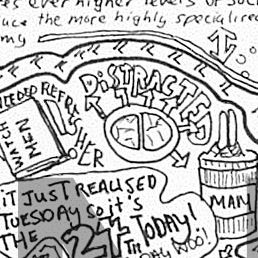 ever higher levels of
the more highly specialised
my
DISTRACTED
NEEDED REFRESHER
MEN
WATCH
MAN
iT JUST REALISED
TUESDAY SO iT'S
THE 27TH TODAY!
WOO!